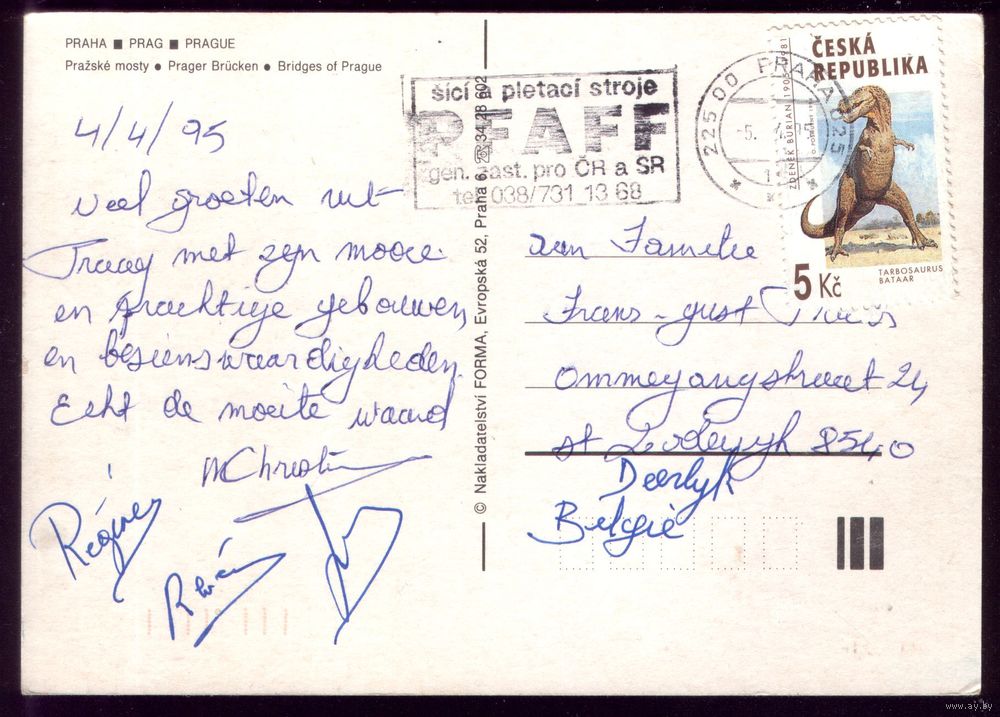 PRAHA ■ PRAG ■ PRAGUE
Pražské mosty ● Prager Brücken ● Bridges of Prague
4/4/95
veel groeten uit
Praag met zyn mooie
en prachtige gebouwen,
en besienswaardigheden.
Echt de moeite waard
MChristi
Régine
© Nakladatelství FORMA, Evropská 52, Praha 6, ☏ 34 28 602
šící a pletací stroje
PFAFF
gen. zast. pro ČR a SR
tel. 038/731 13 68
225 00 PRAHA 025
-5. 4. 95
ČESKÁ
REPUBLIKA
ZDENEK BURIAN 1905-1981
TARBOSAURUS
BATAAR
5 Kč
aan Familie
Frans - gust
Ommegangstraat 24
st Lodewyk 8540
Deerlyk
België
www.ay.by